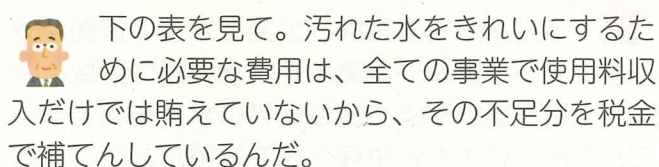 下の表を見て。汚れた水をきれいにするた
めに必要な費用は、全ての事業で使用料収
入だけでは賄えていないから、その不足分を税金
で補てんしているんだ。